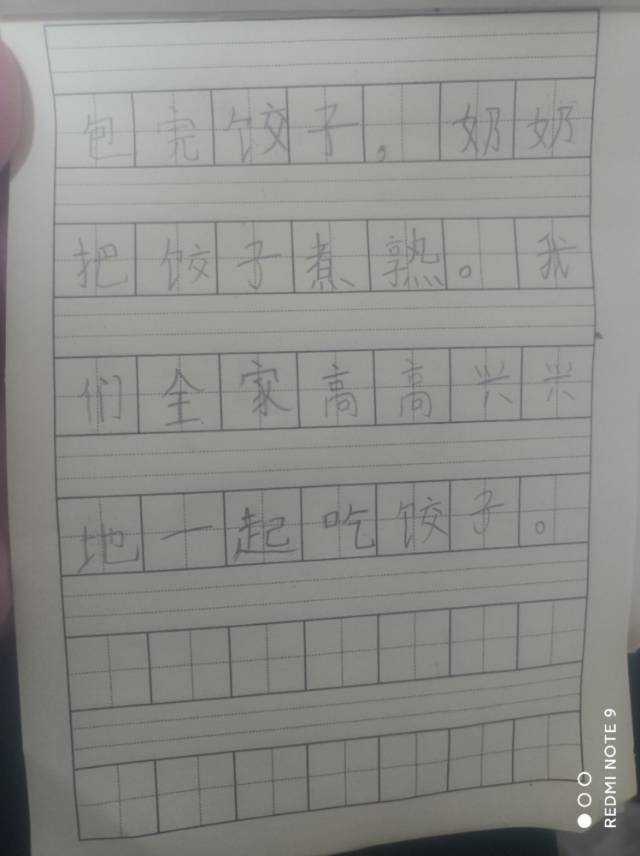 包完饺子，奶奶
把饺子煮熟。我
们全家高高兴兴
地一起吃饺子。
REDMI NOTE 9